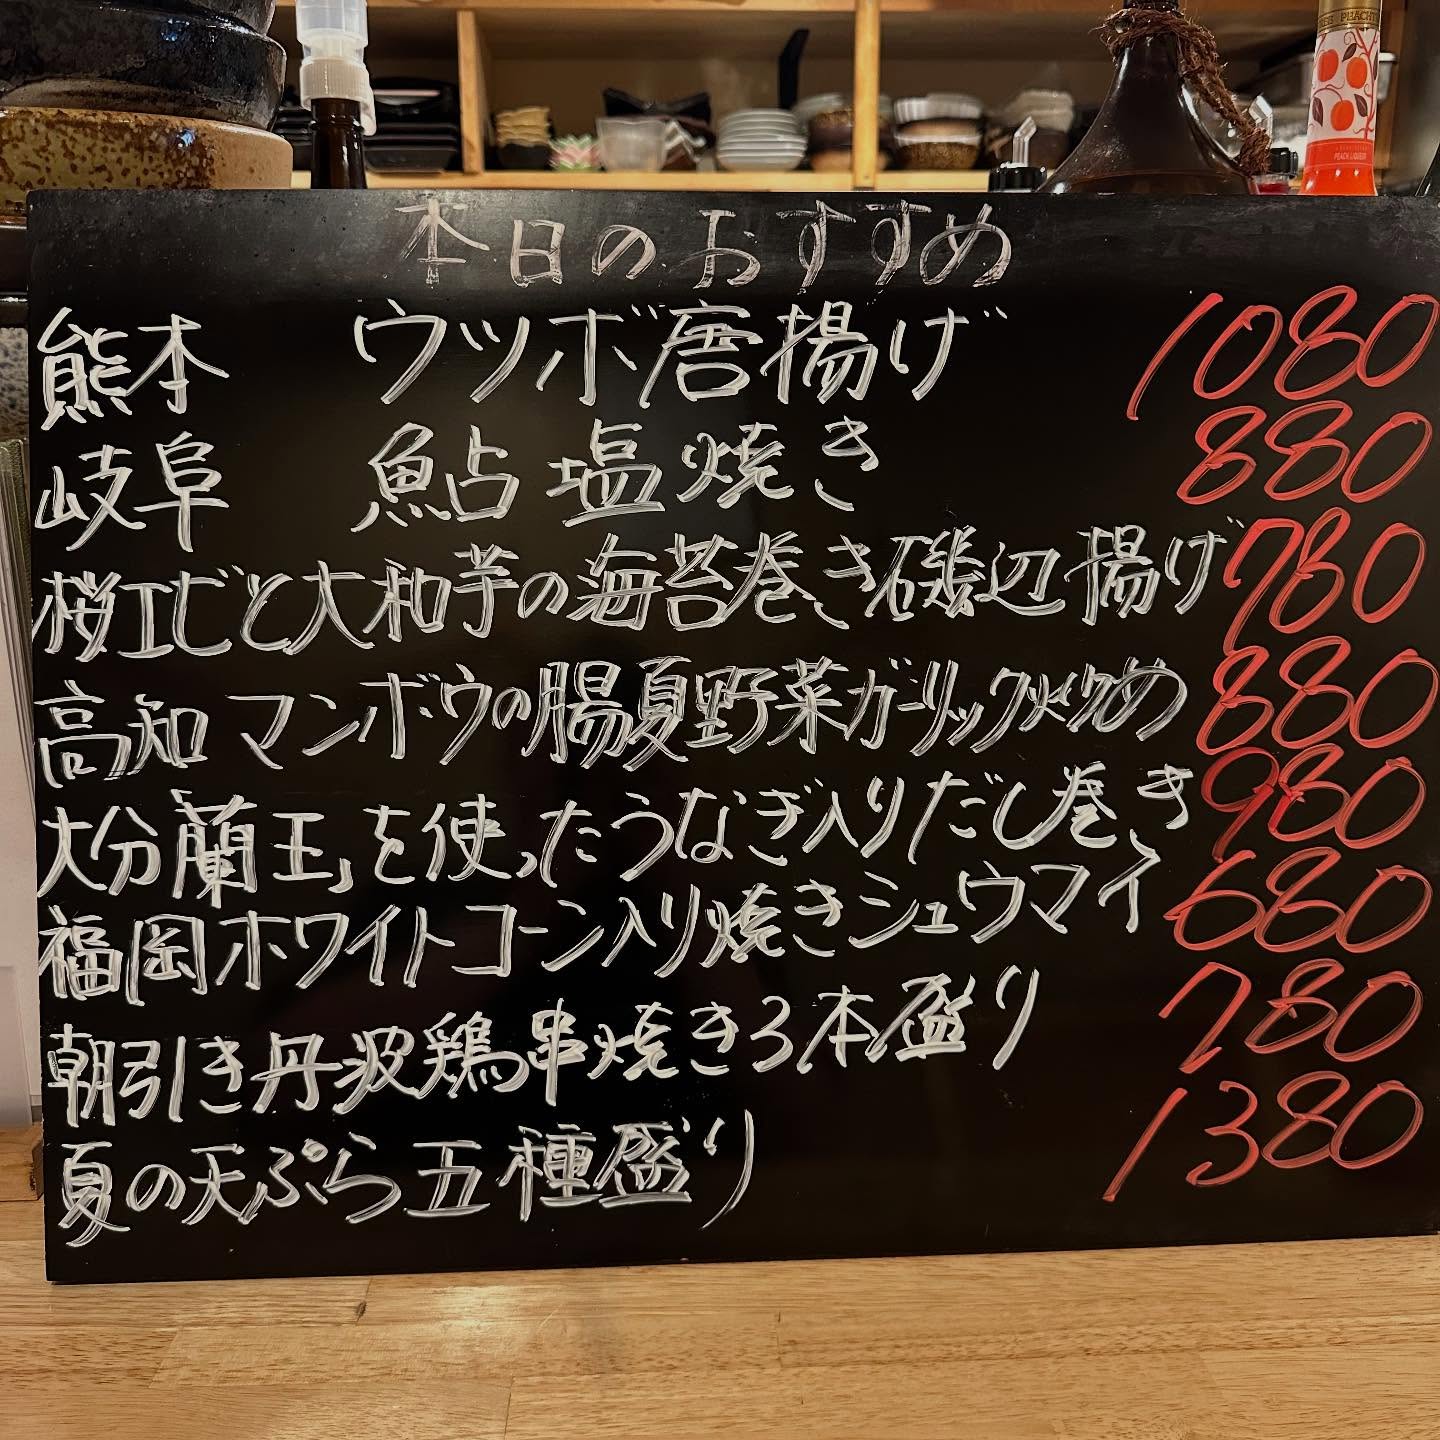 本日のおすすめ
熊本 ウツボ唐揚げ 1080
岐阜 鮎塩焼き 880
桜エビと大和芋の海苔巻き磯辺揚げ 780
高知 マンボウの腸夏野菜ガーリック炒め 880
大分「蘭王」を使ったうなぎ入りだし巻き 980
福岡ホワイトコーン入り焼きシュウマイ 680
朝引き丹波鶏串焼き3本盛り 780
夏の天ぷら五種盛り 1380
PEACH LIQUEUR